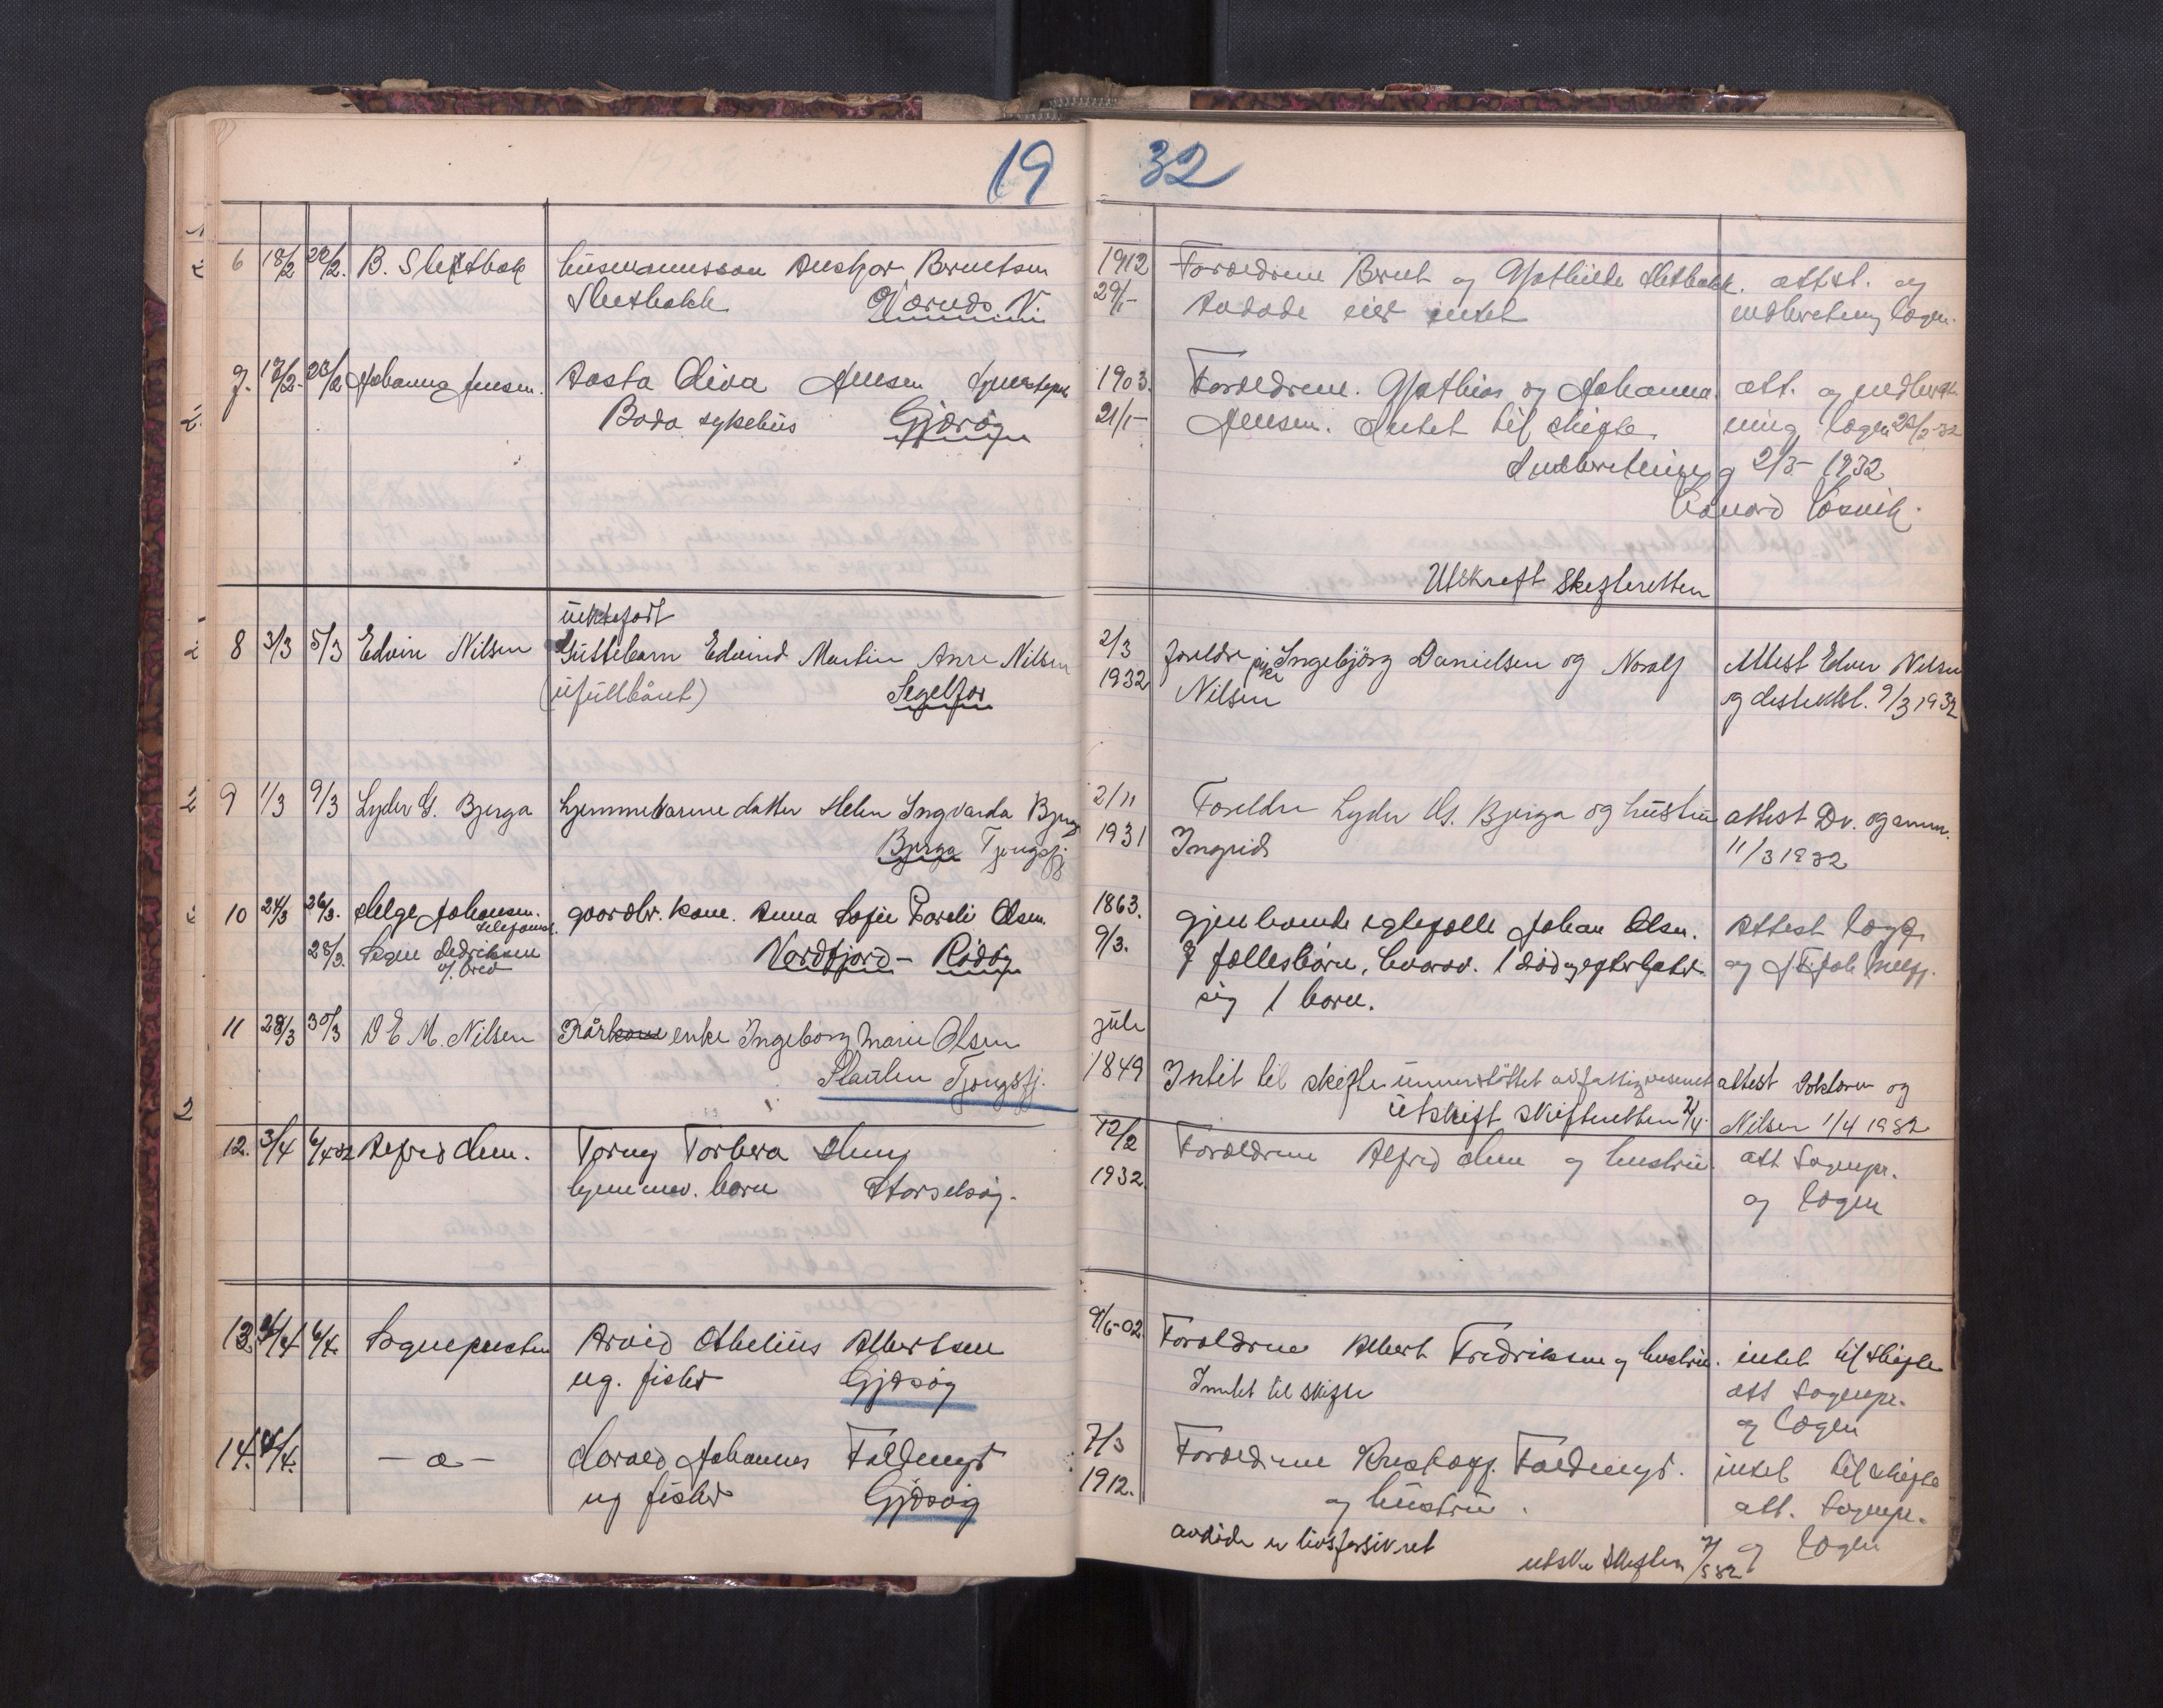 19 32
6 18/2 22/2. B. Slettbak husmannsson Anskar Berntsen 1912 Foreldrene Bernt og Mathilde Sletbakk. attst. og
Sletbakk Værnds V. 29/1- Avdøde eier intet indberetning lægen.
7. 17/2- 23/2 Johanna Jensen. Aasta Oliva Jensen 1903. Foreldrene. Mathias og Johanna att. og indberet-
Bodø sykehus Gjerøy 21/1- Jensen. Intet til skifte ning lægen 22/2-32
Indberetning 2/3- 1932.
Edvard Løsvik.
Utskreft Skifteretten
uektefødt
8 3/3 5/3 Edvin Nilsen Guttebarn Edvind Martin Anre Nilsen 2/3 foreldre pike Ingebjörg Danielsen og Noralf Attest Edvin Nilsen
(ufullbåret) Segelfor 1932 Nilsen og destriktsl. 9/3 1932
9 1/3 9/3 Lyder G. Bjerga hjemmeværine datter Helen Ingvarda Bjerga 2/11 Foreldre Lyder G. Bjerga og hustru attest Dr. og anm.
Bjerga Tjongsfj 1931 Ingrid 11/3 1932
10 24/3 26/3. Helge Johansen. gaardbr. kone. Anna Sofie Pareli Olsen. 1863. gjenlevende egtefelle Johan Olsen. Attest læge
telefonisk.
28/3. Signe Dedriksen Nordfjord - Rødøy 9/3. 7 fellesbörn, hvorav. 1 död og efterladt og Joh
v/ brev sig 1 barn.
11 28/3 30/3 D E M. Nilsen Kårkone enke Ingeborg Marie Olsen juli
Slaulen Tjongsfj. 1849 Intet til skifte understöttet av fattigvesenet attest Doktoren og
utskrift skifteretten 2/4. Nilsen 1/4 1932
12. 3/4 6/4 32 Alfred Olsen. Torny Torbera 12/2 Foreldrene Alfred Olsen og hustru. att Sognepr.
hjemmev. barn Storselsøy. 1932. og lægen
13. 4/4 6/4. Sognepresten Arvid Othelius Albertsen 9/6-02. Foreldrene Albert Fredriksen og hustru. intet til skifte
ug. fisker Gjerøy Inntet til skifte att Sognepr.
og lægen
14. 4/4. - a - Harald Johannes Foldengs 7/3 Foreldrene Kristoff. Foldengs. intet til skifte
ug fisker Gjerøy 1912. og hustru. att. Sognepr.
avdöde er livsforsikret og lægen
utskr Skiften 7/5 32